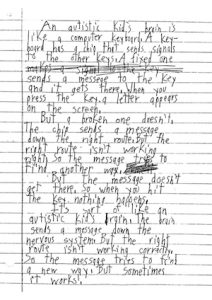 An autistic kid's brain is
like a computer keyboard. A key-
board has a chip that sends signals
to the other keys. A fixed one
makes a signal to the
sends a message to the key
and it gets there. When you
press the key, a letter appears
on the screen.
But a broken one doesn't.
The chip sends a message
down the right route. But the
right route isn't working
right. So the message tries to
find another way.
But the message doesn't
get there. So when you hit
the key nothing happens.
It's sort of like an
autistic kid's brain. The brain
sends a message down the
nervous system. But the right
route isn't working correctly.
So the message tries to find
a new way. But sometimes
it works!